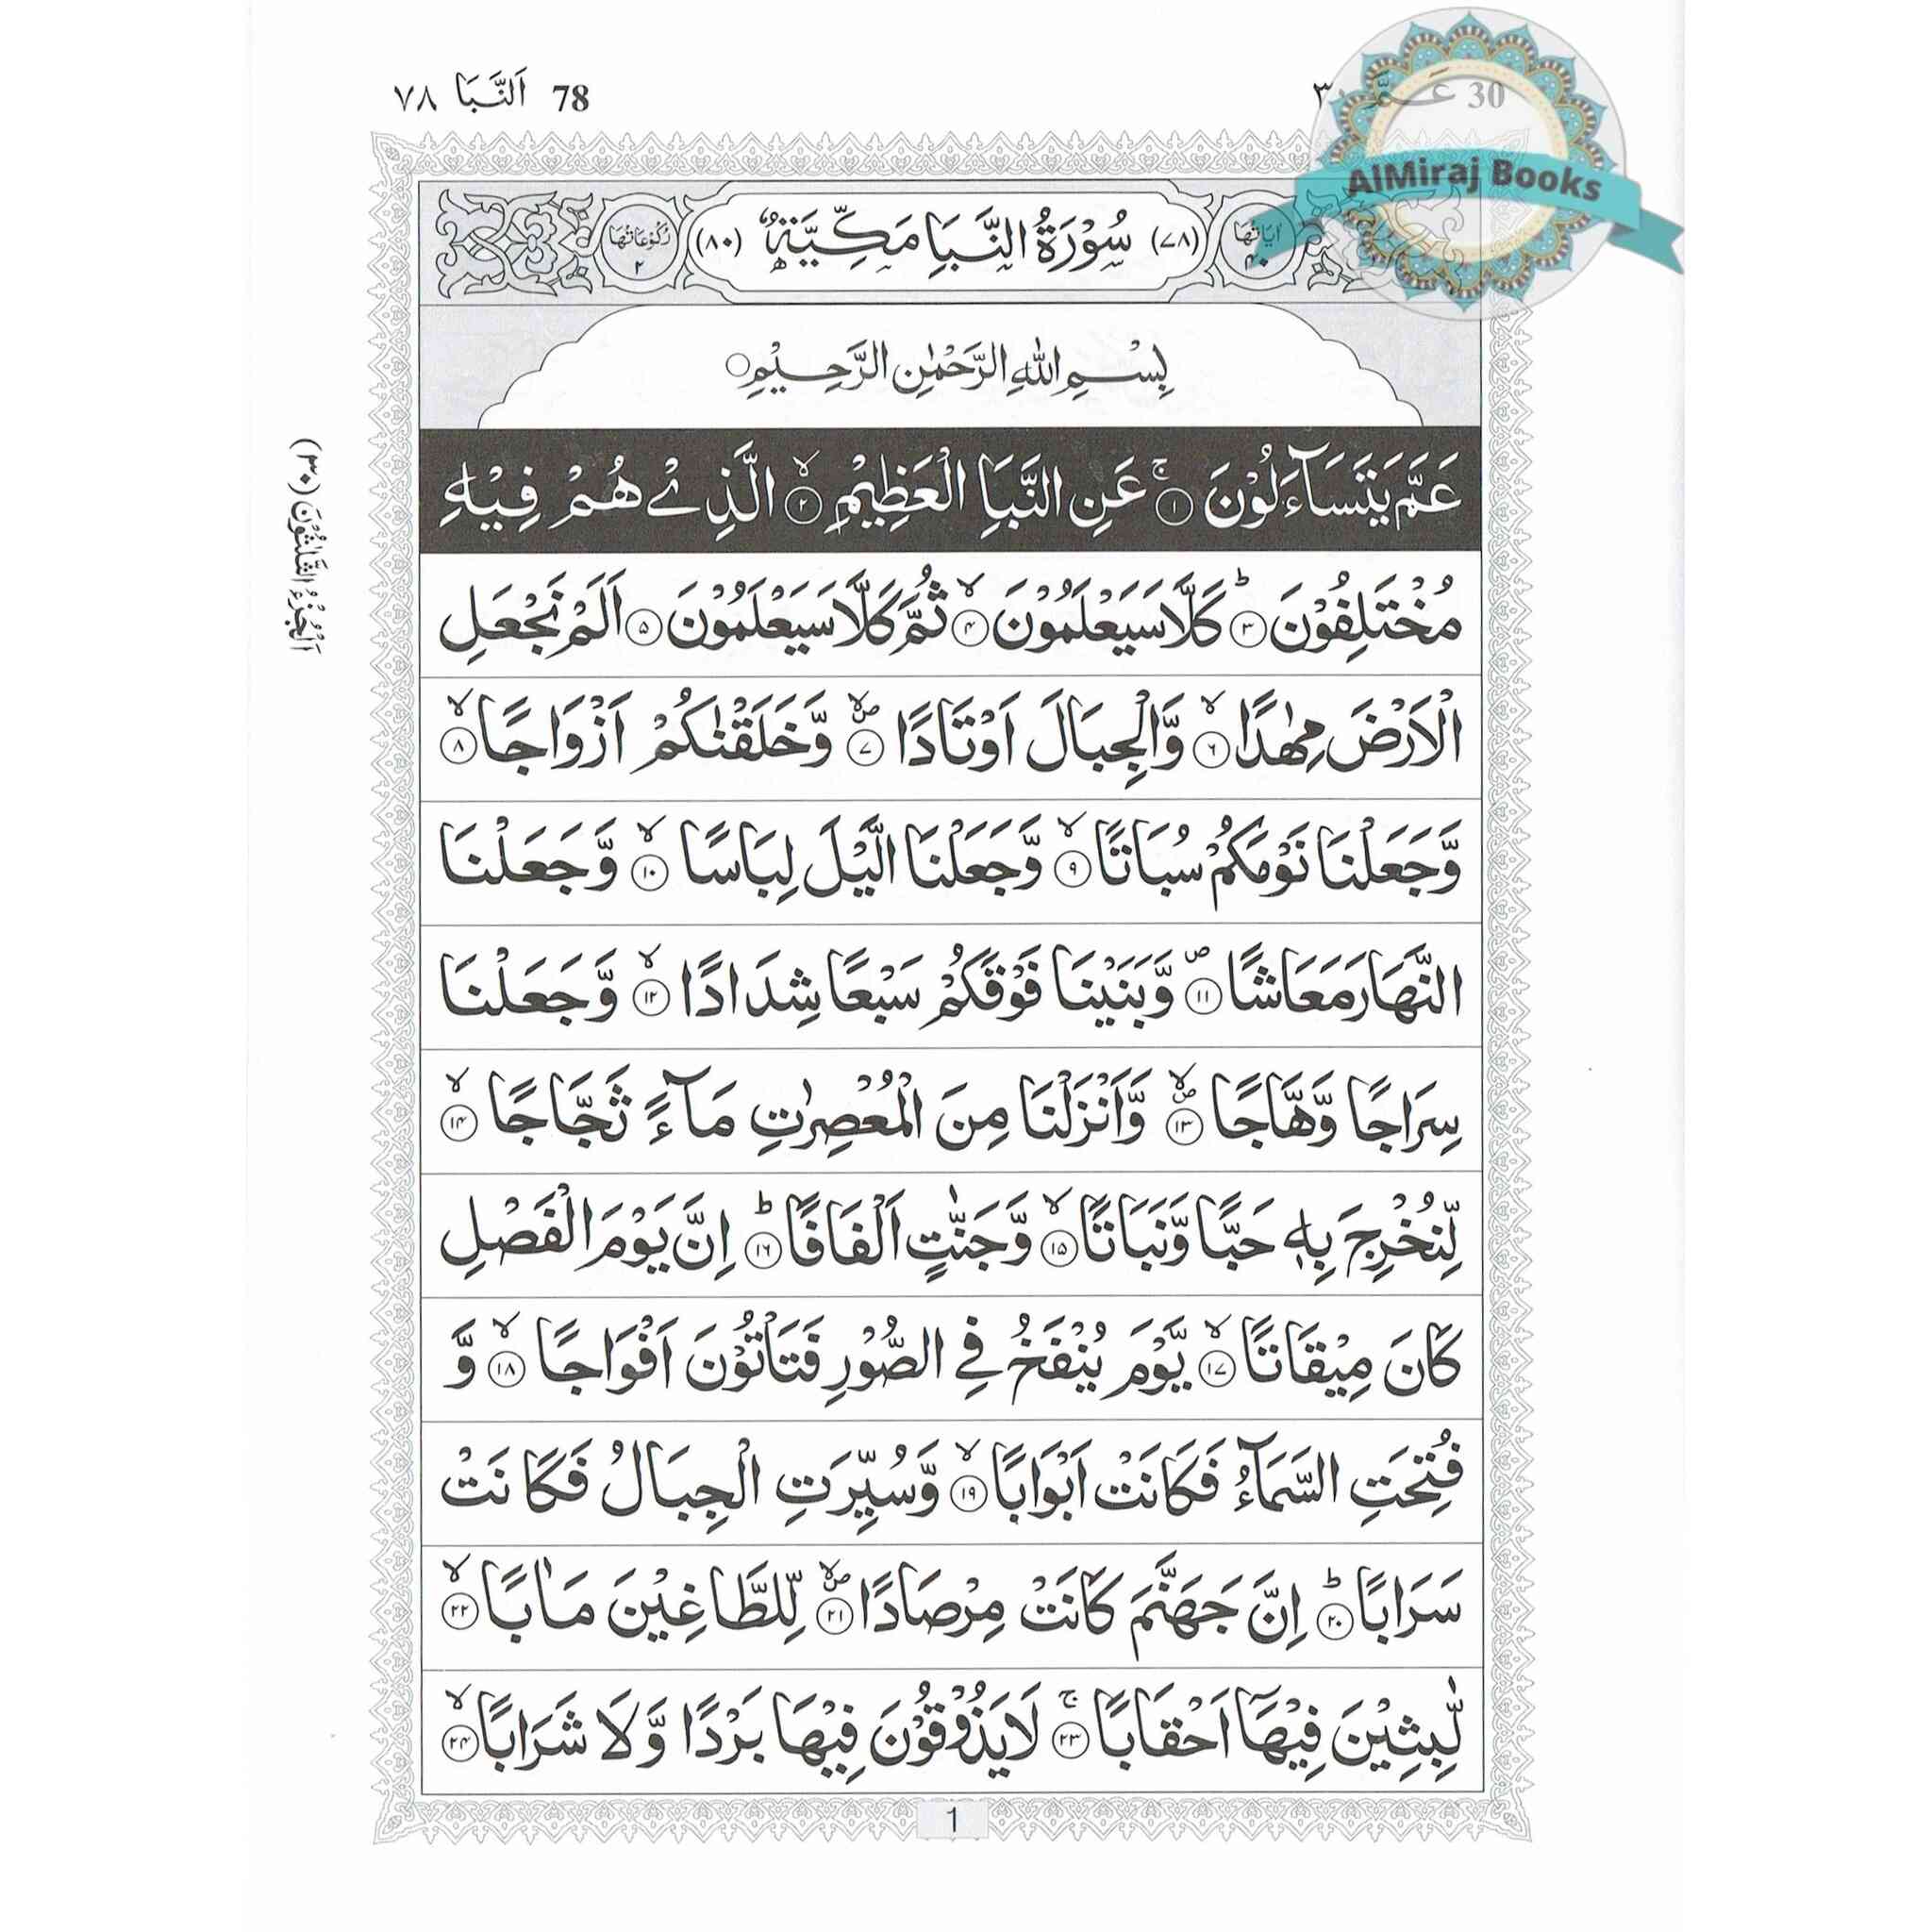 78 اَلنَّبَا ٧٨
30 عَمَّ ٣
AlMiraj Books
اٰيَاتُهَا ٤٠ (٧٨) سُوْرَةُ النَّبَاِ مَكِّيَّةٌ (٨٠) رُكُوْعَاتُهَا ٢
بِسْمِ اللهِ الرَّحْمٰنِ الرَّحِيْمِ
عَمَّ يَتَسَآءَلُوْنَ ۚ ١ عَنِ النَّبَاِ الْعَظِيْمِ ۙ ٢ الَّذِيْ هُمْ فِيْهِ
مُخْتَلِفُوْنَ ؕ ٣ كَلَّا سَيَعْلَمُوْنَ ۙ ٤ ثُمَّ كَلَّا سَيَعْلَمُوْنَ ٥ اَلَمْ نَجْعَلِ
الْاَرْضَ مِهٰدًا ۙ ٦ وَّالْجِبَالَ اَوْتَادًا ۪ۙ ٧ وَّخَلَقْنٰكُمْ اَزْوَاجًا ۙ ٨
وَّجَعَلْنَا نَوْمَكُمْ سُبَاتًا ۙ ٩ وَّجَعَلْنَا الَّيْلَ لِبَاسًا ۙ ١٠ وَّجَعَلْنَا
النَّهَارَ مَعَاشًا ۪ ١١ وَّبَنَيْنَا فَوْقَكُمْ سَبْعًا شِدَادًا ۙ ١٢ وَّجَعَلْنَا
سِرَاجًا وَّهَّاجًا ۪ۙ ١٣ وَّاَنْزَلْنَا مِنَ الْمُعْصِرٰتِ مَآءً ثَجَّاجًا ۙ ١٤
لِّنُخْرِجَ بِهٖ حَبًّا وَّنَبَاتًا ۙ ١٥ وَّجَنّٰتٍ اَلْفَافًا ؕ ١٦ اِنَّ يَوْمَ الْفَصْلِ
كَانَ مِيْقَاتًا ۙ ١٧ يَّوْمَ يُنْفَخُ فِي الصُّوْرِ فَتَاْتُوْنَ اَفْوَاجًا ۙ ١٨ وَّ
فُتِحَتِ السَّمَآءُ فَكَانَتْ اَبْوَابًا ۙ ١٩ وَّسُيِّرَتِ الْجِبَالُ فَكَانَتْ
سَرَابًا ؕ ٢٠ اِنَّ جَهَنَّمَ كَانَتْ مِرْصَادًا ۪ۙ ٢١ لِّلطَّاغِيْنَ مَاٰبًا ۙ ٢٢
لّٰبِثِيْنَ فِيْهَآ اَحْقَابًا ۚ ٢٣ لَا يَذُوْقُوْنَ فِيْهَا بَرْدًا وَّلَا شَرَابًا ۙ ٢٤
اَلْجُزْءُ الثَّلٰثُوْنَ (٣٠)
1